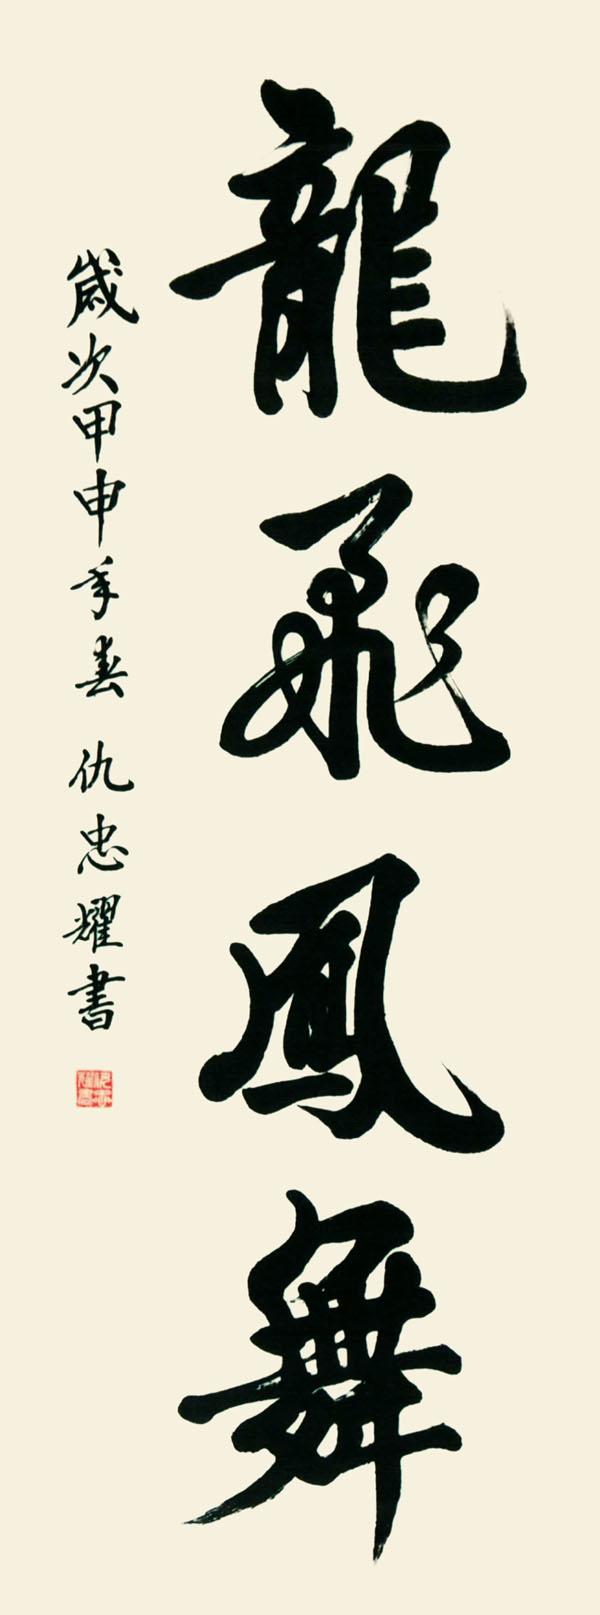 龍飛鳳舞
歲次甲申年春 仇忠耀書